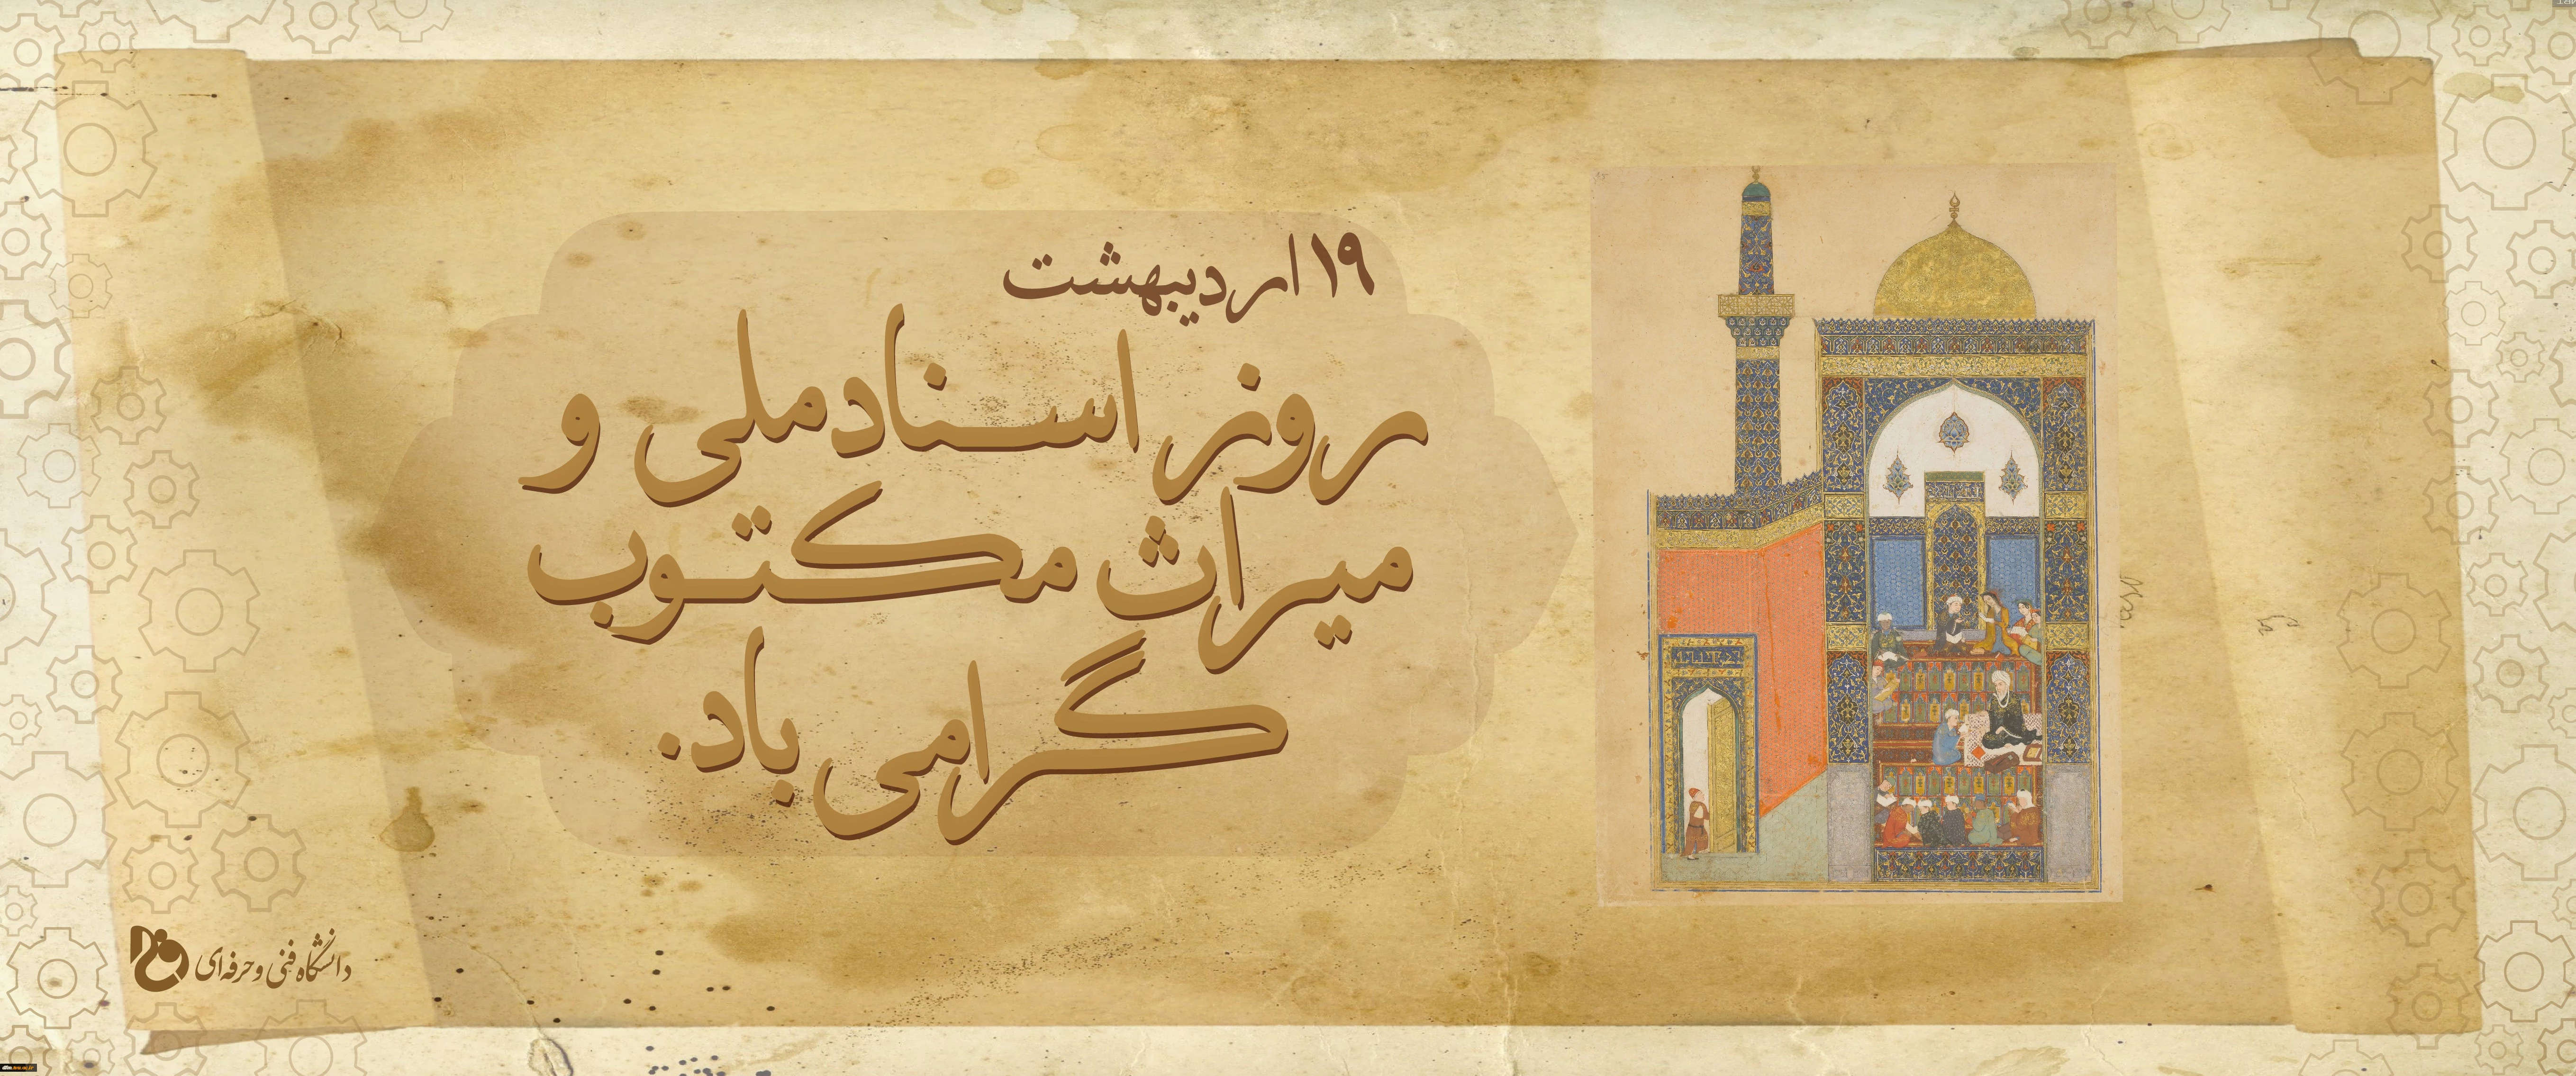 ۱۹ اردیبهشت
روز اسناد ملی و
میراث مکتوب
گرامی باد.
دانشگاه فنی و حرفه‌ای